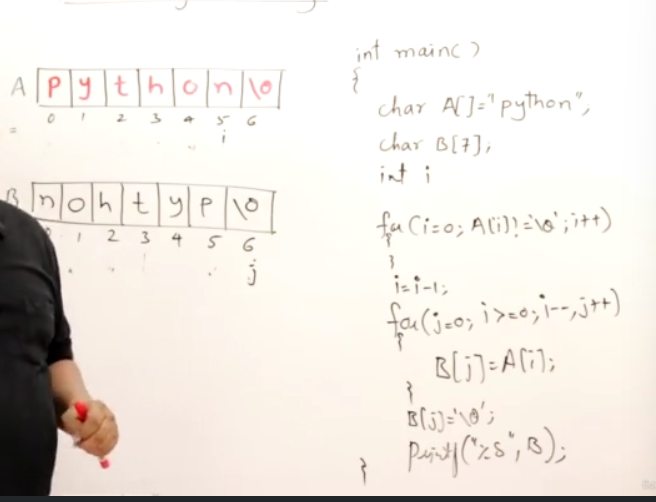 A p y t h o n \0
0 1 2 3 4 5 6
i
B n o h t y p \0
1 2 3 4 5 6
j
int main()
{
char A[]="python";
char B[7];
int i
for(i=0; A[i]!='\0'; i++)
{
}
i=i-1;
for(j=0; i>=0; i--, j++)
{
B[j]=A[i];
}
B[j]='\0';
printf("%s", B);
}